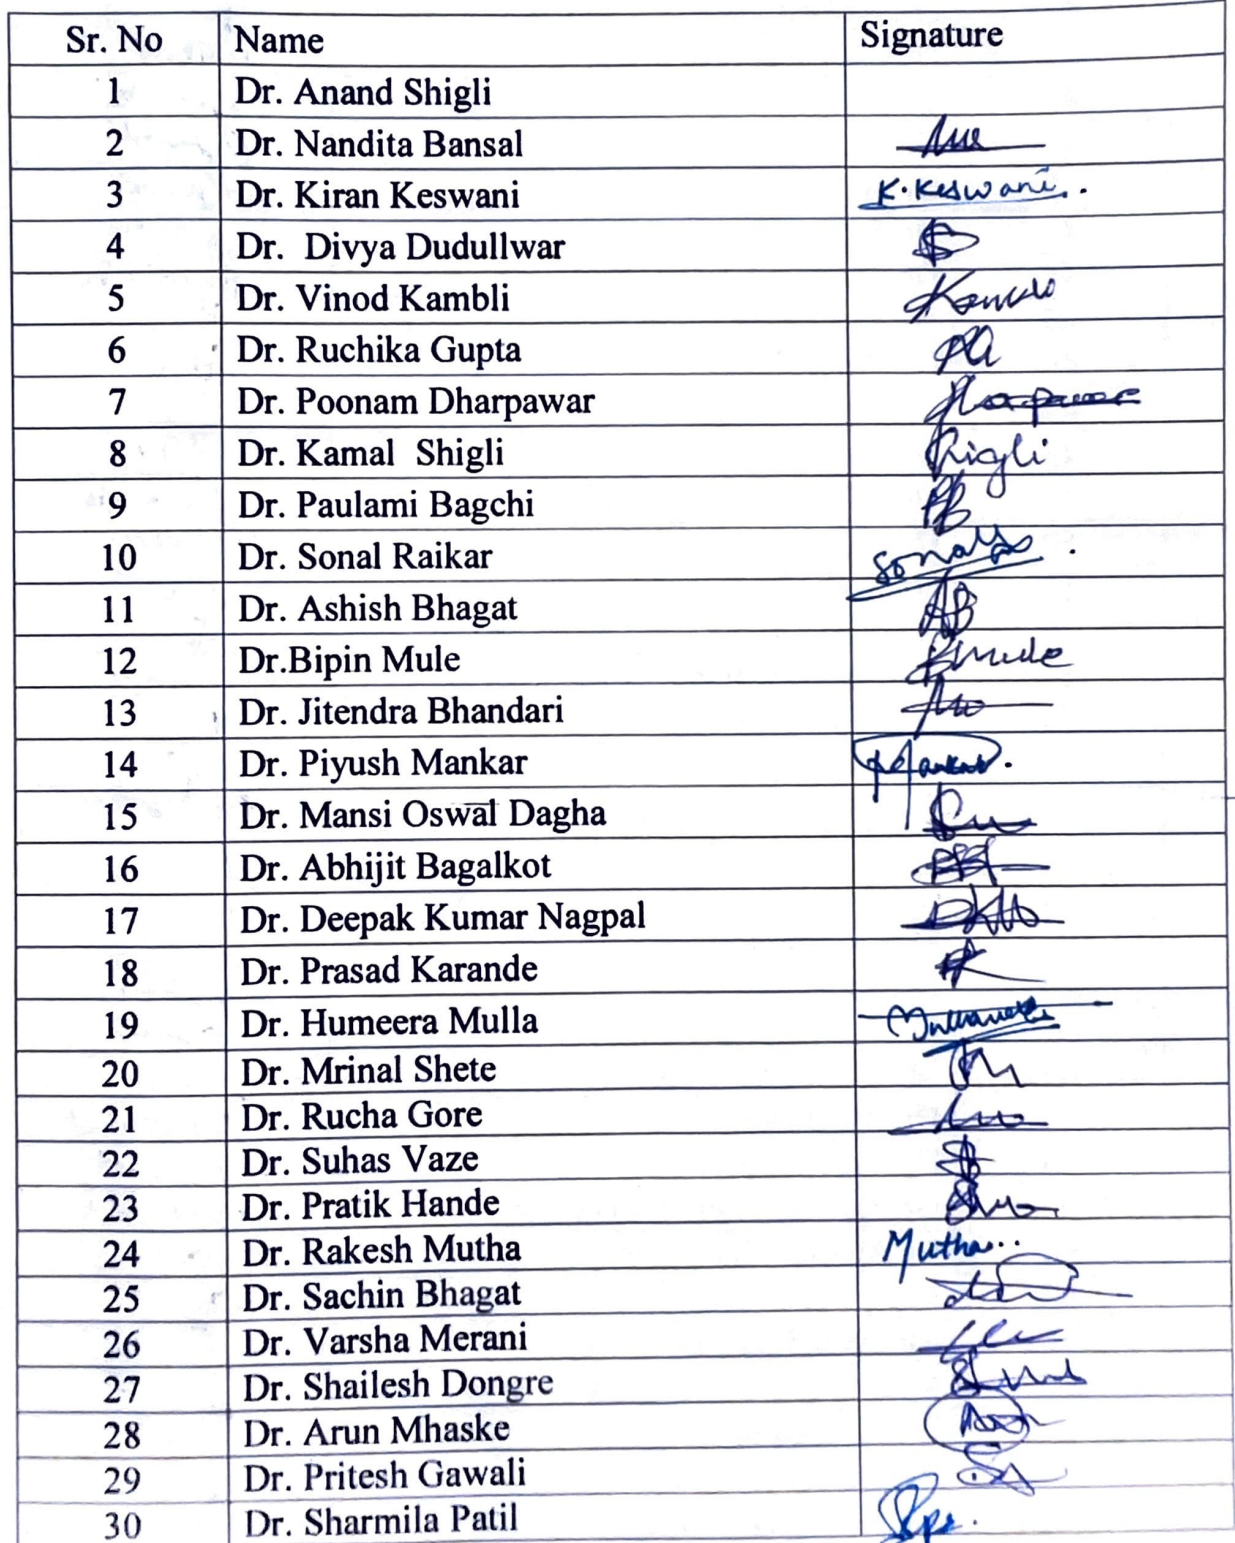 Sr. No Name Signature
1 Dr. Anand Shigli
2 Dr. Nandita Bansal
3 Dr. Kiran Keswani K. Keswani.
4 Dr. Divya Dudullwar
5 Dr. Vinod Kambli
6 Dr. Ruchika Gupta
7 Dr. Poonam Dharpawar
8 Dr. Kamal Shigli
9 Dr. Paulami Bagchi
10 Dr. Sonal Raikar Sonal
11 Dr. Ashish Bhagat AB
12 Dr.Bipin Mule BMule
13 Dr. Jitendra Bhandari
14 Dr. Piyush Mankar
15 Dr. Mansi Oswal Dagha
16 Dr. Abhijit Bagalkot
17 Dr. Deepak Kumar Nagpal
18 Dr. Prasad Karande
19 Dr. Humeera Mulla
20 Dr. Mrinal Shete
21 Dr. Rucha Gore
22 Dr. Suhas Vaze
23 Dr. Pratik Hande
24 Dr. Rakesh Mutha Mutha..
25 Dr. Sachin Bhagat
26 Dr. Varsha Merani
27 Dr. Shailesh Dongre
28 Dr. Arun Mhaske
29 Dr. Pritesh Gawali
30 Dr. Sharmila Patil